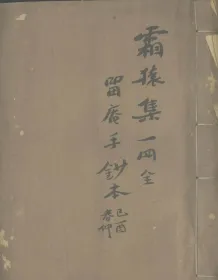 霜猿集一四全
留庵手鈔本
己酉
春仰